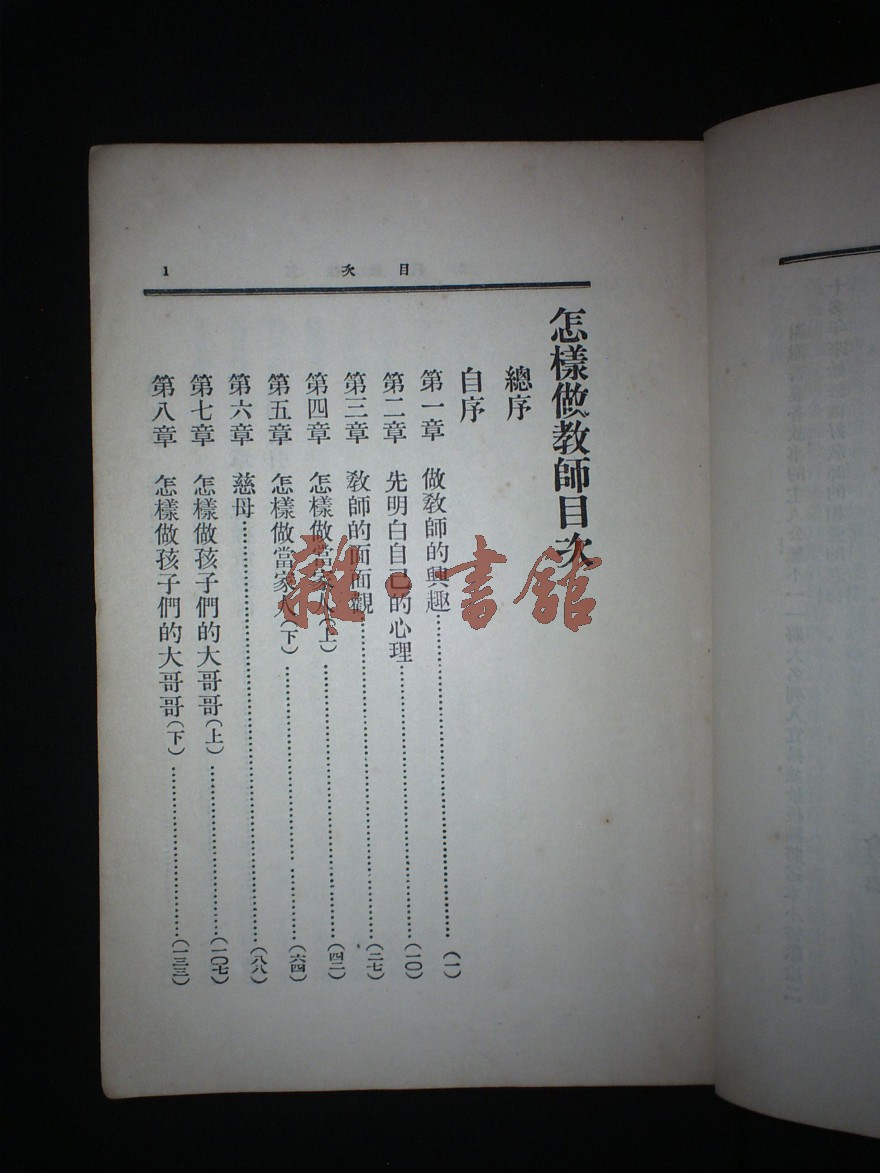 目次 1
怎樣做教師目次
總序
自序
第一章 做教師的興趣……(一)
第二章 先明白自己的心理……(一〇)
第三章 教師的面面觀……(二七)
第四章 怎樣做當家人(上)……(四二)
第五章 怎樣做當家人(下)……(六四)
第六章 慈母……(八八)
第七章 怎樣做孩子們的大哥哥(上)……(一〇七)
第八章 怎樣做孩子們的大哥哥(下)……(一三三)
雜·書館